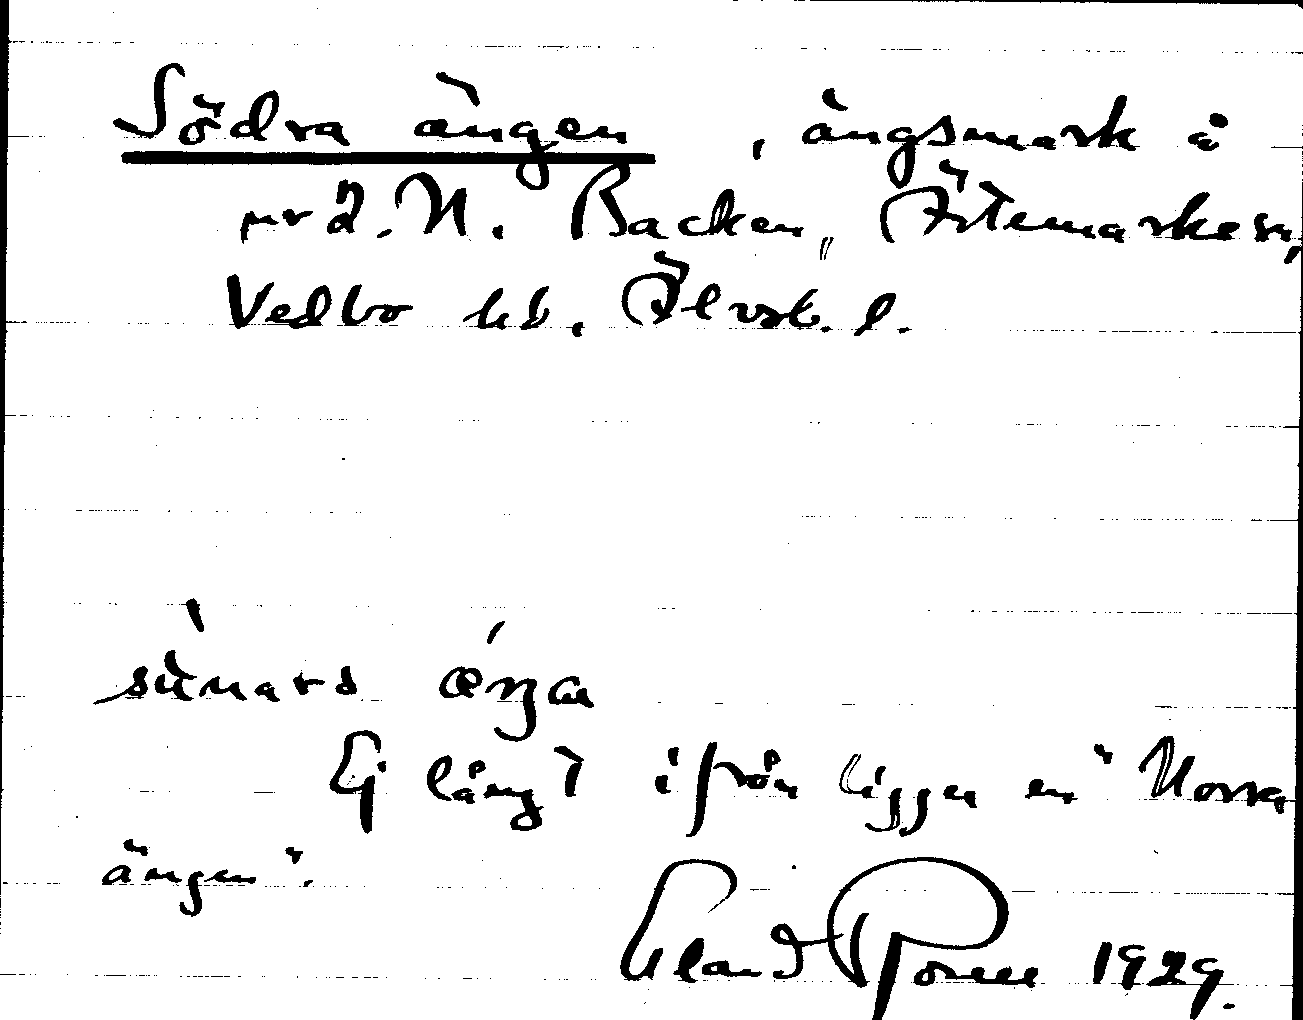 Södra ängen, ängsmark å
mr d. N. Backen, Ärtemarks sn,
Vedbo hd. Älvsb. l.
sùnars æŋa
Ej långt ifrån ligger en "Norra
ängen".
Eland 1929.